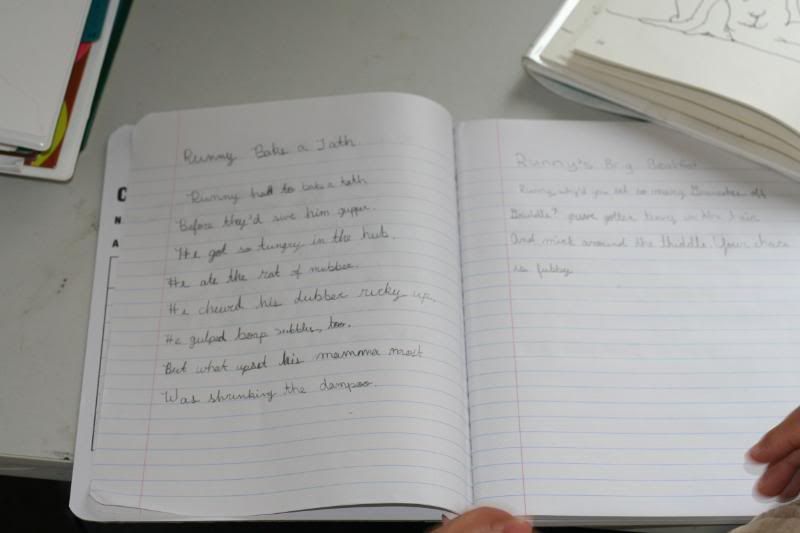 Runny Bake a Tath
Runny hatt to bake a tath
Before they'd sive him gupper.
He got so tungry in the hub,
He ate the rat of mubber.
He chewed his dubber rucky up,
He gulped boap subbles, too.
But what upset his mamma most
Was shrinking the dampoo.
Runny's Brig
Runny, why'd you eat so many of
in
And mist around the thiddle! Your
is fubby
C
N
A